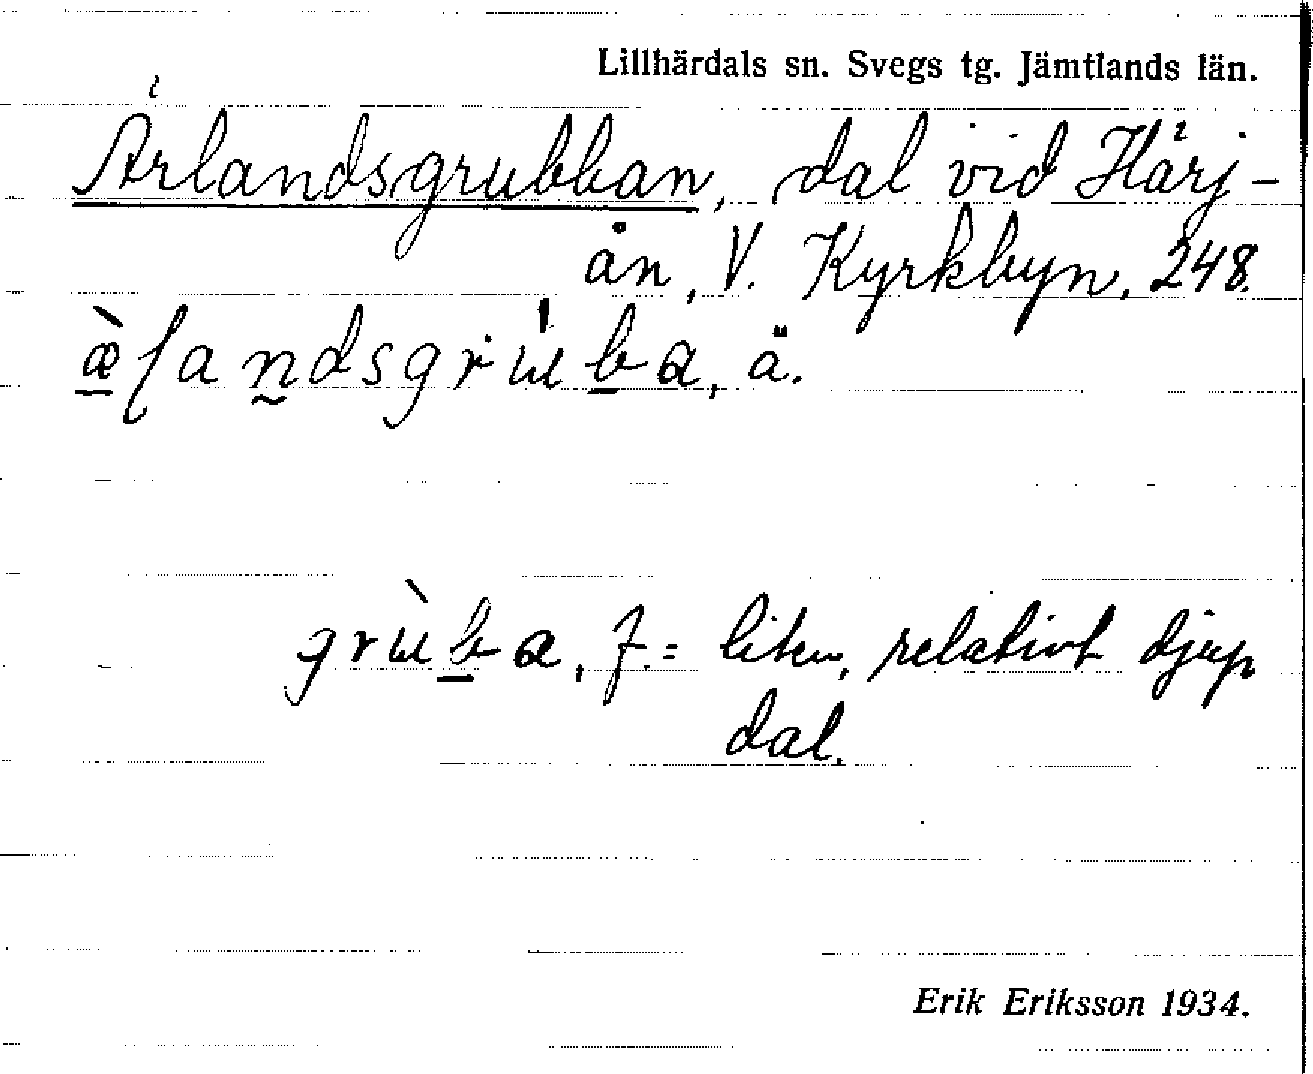 Lillhärdals sn. Svegs tg. Jämtlands län.
Ärlandsgrubban, dal vid Härj-
ån, V. Kyrkbyn, 248.
æ̀ſandsgrɯba, ä.
grɯ̀ba, f. = liten, relativt djup
dal.
Erik Eriksson 1934.